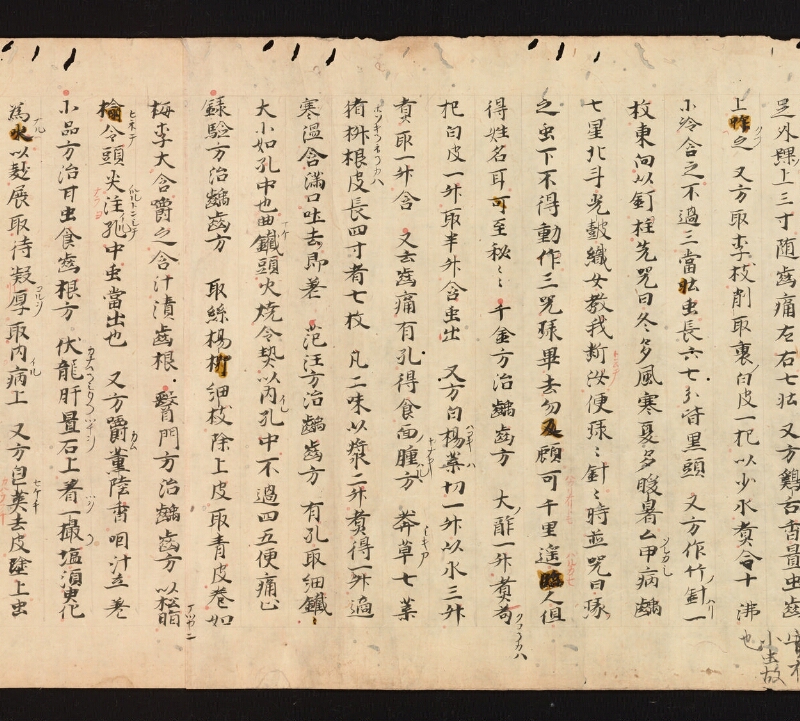 足外踝上三寸随齒痛左右七壮 又方鷄舌香置虫齒
上𠯗之 又方取李枝削取裏白皮一把以少水煑令十沸
小冷含之不過三當吐虫長六七分皆黒頭 又方作竹針一
枚東向以釘柱先咒曰冬多風寒夏多暖暑厶甲病齲
七星北斗光皷織女教我斬汝便琢〻針〻時並咒曰琢
之虫下不得動作三咒琢畢去勿反顧可千里遥臨人但
得姓名耳可至秘〻 千金方治齲齒方 大酢一升煑苟
杞白皮一升取半升含虫出 又方白楊葉切一升以水三升
煑取一升含 又云齒痛有孔得食面腫方 莽草七葉
猪椒根皮長四寸者七枚 凡二味以漿二升煑得一升適
寒温含満口吐去即差 范汪方治齲齒方 有孔取細鐵〻
大小如孔中也曲鐵頭火燒令熱以内孔中不過四五便痛止
録驗方治齲齒方 取絲楊柳細枝除上皮取青皮巻如
梅李大含嚼之含汁漬齒根 醫門方治齲齒方以松脂
捻令頭尖注孔中虫當出也 又方嚼薫陸香咽汁立差
小品方治耳虫食齒根方 伏龍肝置石上着一撮塩須臾化
為火以麨展取待凝厚取内病上 又方皂莢去皮塗上虫